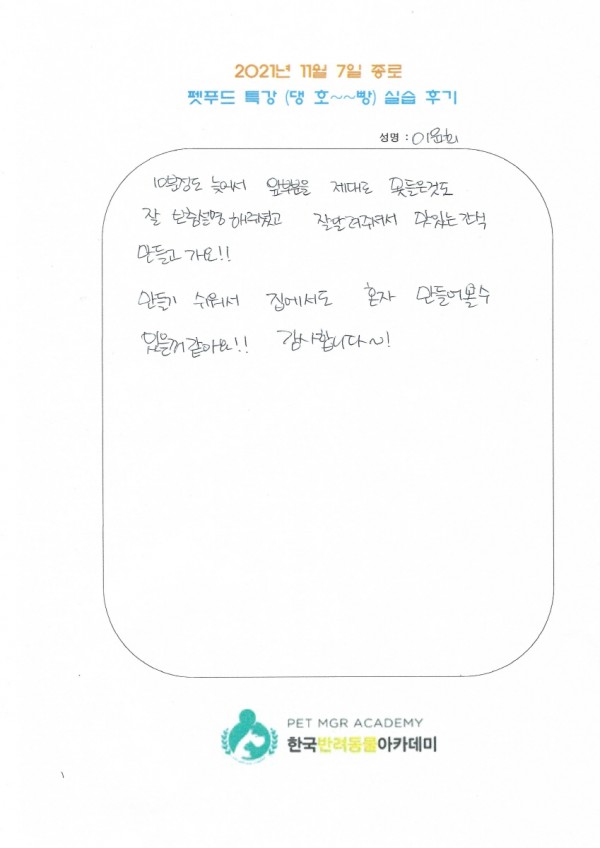 2021년 11월 7일 종로
펫푸드 특강 (댕 호~~빵) 실습 후기
성명 : 이윤희
10분정도 늦어서 앞부분을 제대로 못들은것도
잘 보충설명 해주셨고 잘알려주셔서 맛있는간식
만들고 가요!!
만들기 쉬워서 집에서도 혼자 만들어볼수
있을거같아요!! 감사합니다~!
PET MGR ACADEMY
한국반려동물아카데미